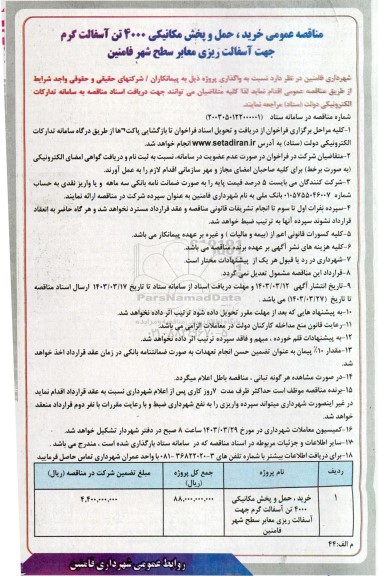 مناقصه عمومی خرید ، حمل و پخش مکانیکی ۴۰۰۰ تن آسفالت گرم
جهت آسفالت ریزی معابر سطح شهر فامنین
شهرداری فامنین در نظر دارد نسبت به واگذاری پروژه ذیل به پیمانکاران / شرکتهای حقیقی و حقوقی واجد شرایط
از طریق مناقصه عمومی اقدام نماید لذا کلیه متقاضیان می توانند جهت دریافت اسناد مناقصه به سامانه تدارکات
الکترونیکی دولت (ستاد) مراجعه نمایند.
شماره مناقصه در سامانه ستاد (۲۰۰۳۰۵۰۱۴۲۰۰۰۰۰۱)
۱-کلیه مراحل برگزاری فراخوان از دریافت و تحویل اسناد فراخوان تا بازگشایی پاکت ها از طریق درگاه سامانه تدارکات
الکترونیکی دولت (ستاد) به آدرس www.setadiran.ir انجام خواهد شد.
۲-متقاضیان شرکت در فراخوان در صورت عدم عضویت در سامانه، نسبت به ثبت نام و دریافت گواهی امضای الکترونیکی
(به صورت برخط) برای کلیه صاحبان امضای مجاز و مهر سازمانی اقدام لازم را به عمل آورند.
۳-شرکت کنندگان می بایست ۵ درصد قیمت پایه را به صورت ضمانت نامه بانکی سه ماهه و یا واریز نقدی به حساب
شماره ۰۱۰۵۷۵۵۰۴۶۰۰۷ بانک ملی به نام شهرداری فامنین به عنوان سپرده شرکت در مناقصه ارائه نمایند.
۴-سپرده نفرات اول تا سوم تا انجام تشریفات قانونی مناقصه و عقد قرارداد مسترد نخواهد شد و هر گاه حاضر به انعقاد
قرارداد نشوند سپرده آنها به ترتیب ضبط خواهد شد.
۵-کلیه کسورات قانونی اعم از (بیمه و مالیات ) و غیره بر عهده پیمانکار می باشد.
۶-کلیه هزینه های نشر آگهی بر عهده برنده مناقصه می باشد.
۷-شهرداری در رد یا قبول هر یک از پیشنهادات مختار است.
۸-قرارداد این مناقصه مشمول تعدیل نمی گردد.
۹-تاریخ انتشار آگهی ۱۴۰۳/۰۳/۱۲ و مهلت دریافت اسناد از سامانه ستاد تا تاریخ ۱۴۰۳/۰۳/۱۷ ارسال اسناد مناقصه
تا تاریخ (۱۴۰۳/۰۳/۲۷) می باشد .
۱۰-به پیشنهاد هایی که بعد از مهلت مقرر تحویل داده شود ترتیب اثر داده نخواهد شد.
۱۱-رعایت قانون منع مداخله کارکنان دولت در معاملات الزامی می باشد.
۱۲-به پیشنهادات قلم خورده ، مبهم و فاقد سپرده ترتیب اثر داده نخواهد شد.
۱۳-مقدار ۱۰٪ پیمان به عنوان تضمین حسن انجام تعهدات به صورت ضمانتنامه بانکی در زمان عقد قرارداد اخذ خواهد
شد.
۱۴-در صورت مشاهده هر گونه تبانی ، مناقصه باطل اعلام میگردد.
۱۵-برنده مناقصه موظف است حداکثر ظرف مدت ۷روز کاری پس از اعلام شهرداری نسبت به عقد قرارداد اقدام نماید
در غیر اینصورت شهرداری میتواند سپرده واریزی را به نفع شهرداری ضبط و با رعایت مقررات با نفر دوم قرارداد منعقد
خواهد شد.
۱۶-کمیسیون معاملات شهرداری در مورخ ۱۴۰۳/۰۳/۲۹ ساعت ۸ صبح در دفتر شهردار تشکیل خواهد شد.
۱۷-سایر اطلاعات و جزئیات مربوطه در اسناد مناقصه که در سامانه ستاد بارگذاری شده است ، مندرج می باشد .
۱۸-برای دریافت اطلاعات بیشتر با شماره تلفن های ۳-۳۶۸۲۲۰۲۰-۰۸۱ با واحد عمران شهرداری تماس حاصل فرمایید
ردیف نام پروژه جمع کل پروژه (ریال) مبلغ تضمین شرکت در مناقصه (ریال)
۱ خرید ، حمل و پخش مکانیکی ۸۸،۰۰۰،۰۰۰،۰۰۰ ۴،۴۰۰،۰۰۰،۰۰۰
۴۰۰۰ تن آسفالت گرم جهت
آسفالت ریزی معابر سطح شهر
فامنین
م الف:۴۴
روابط عمومی شهرداری فامنین
ParsNamadData